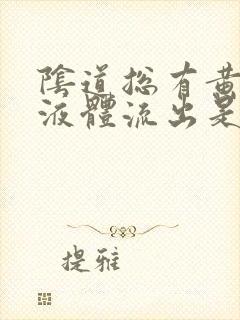 陰道總有黃
液體流出是
提雅